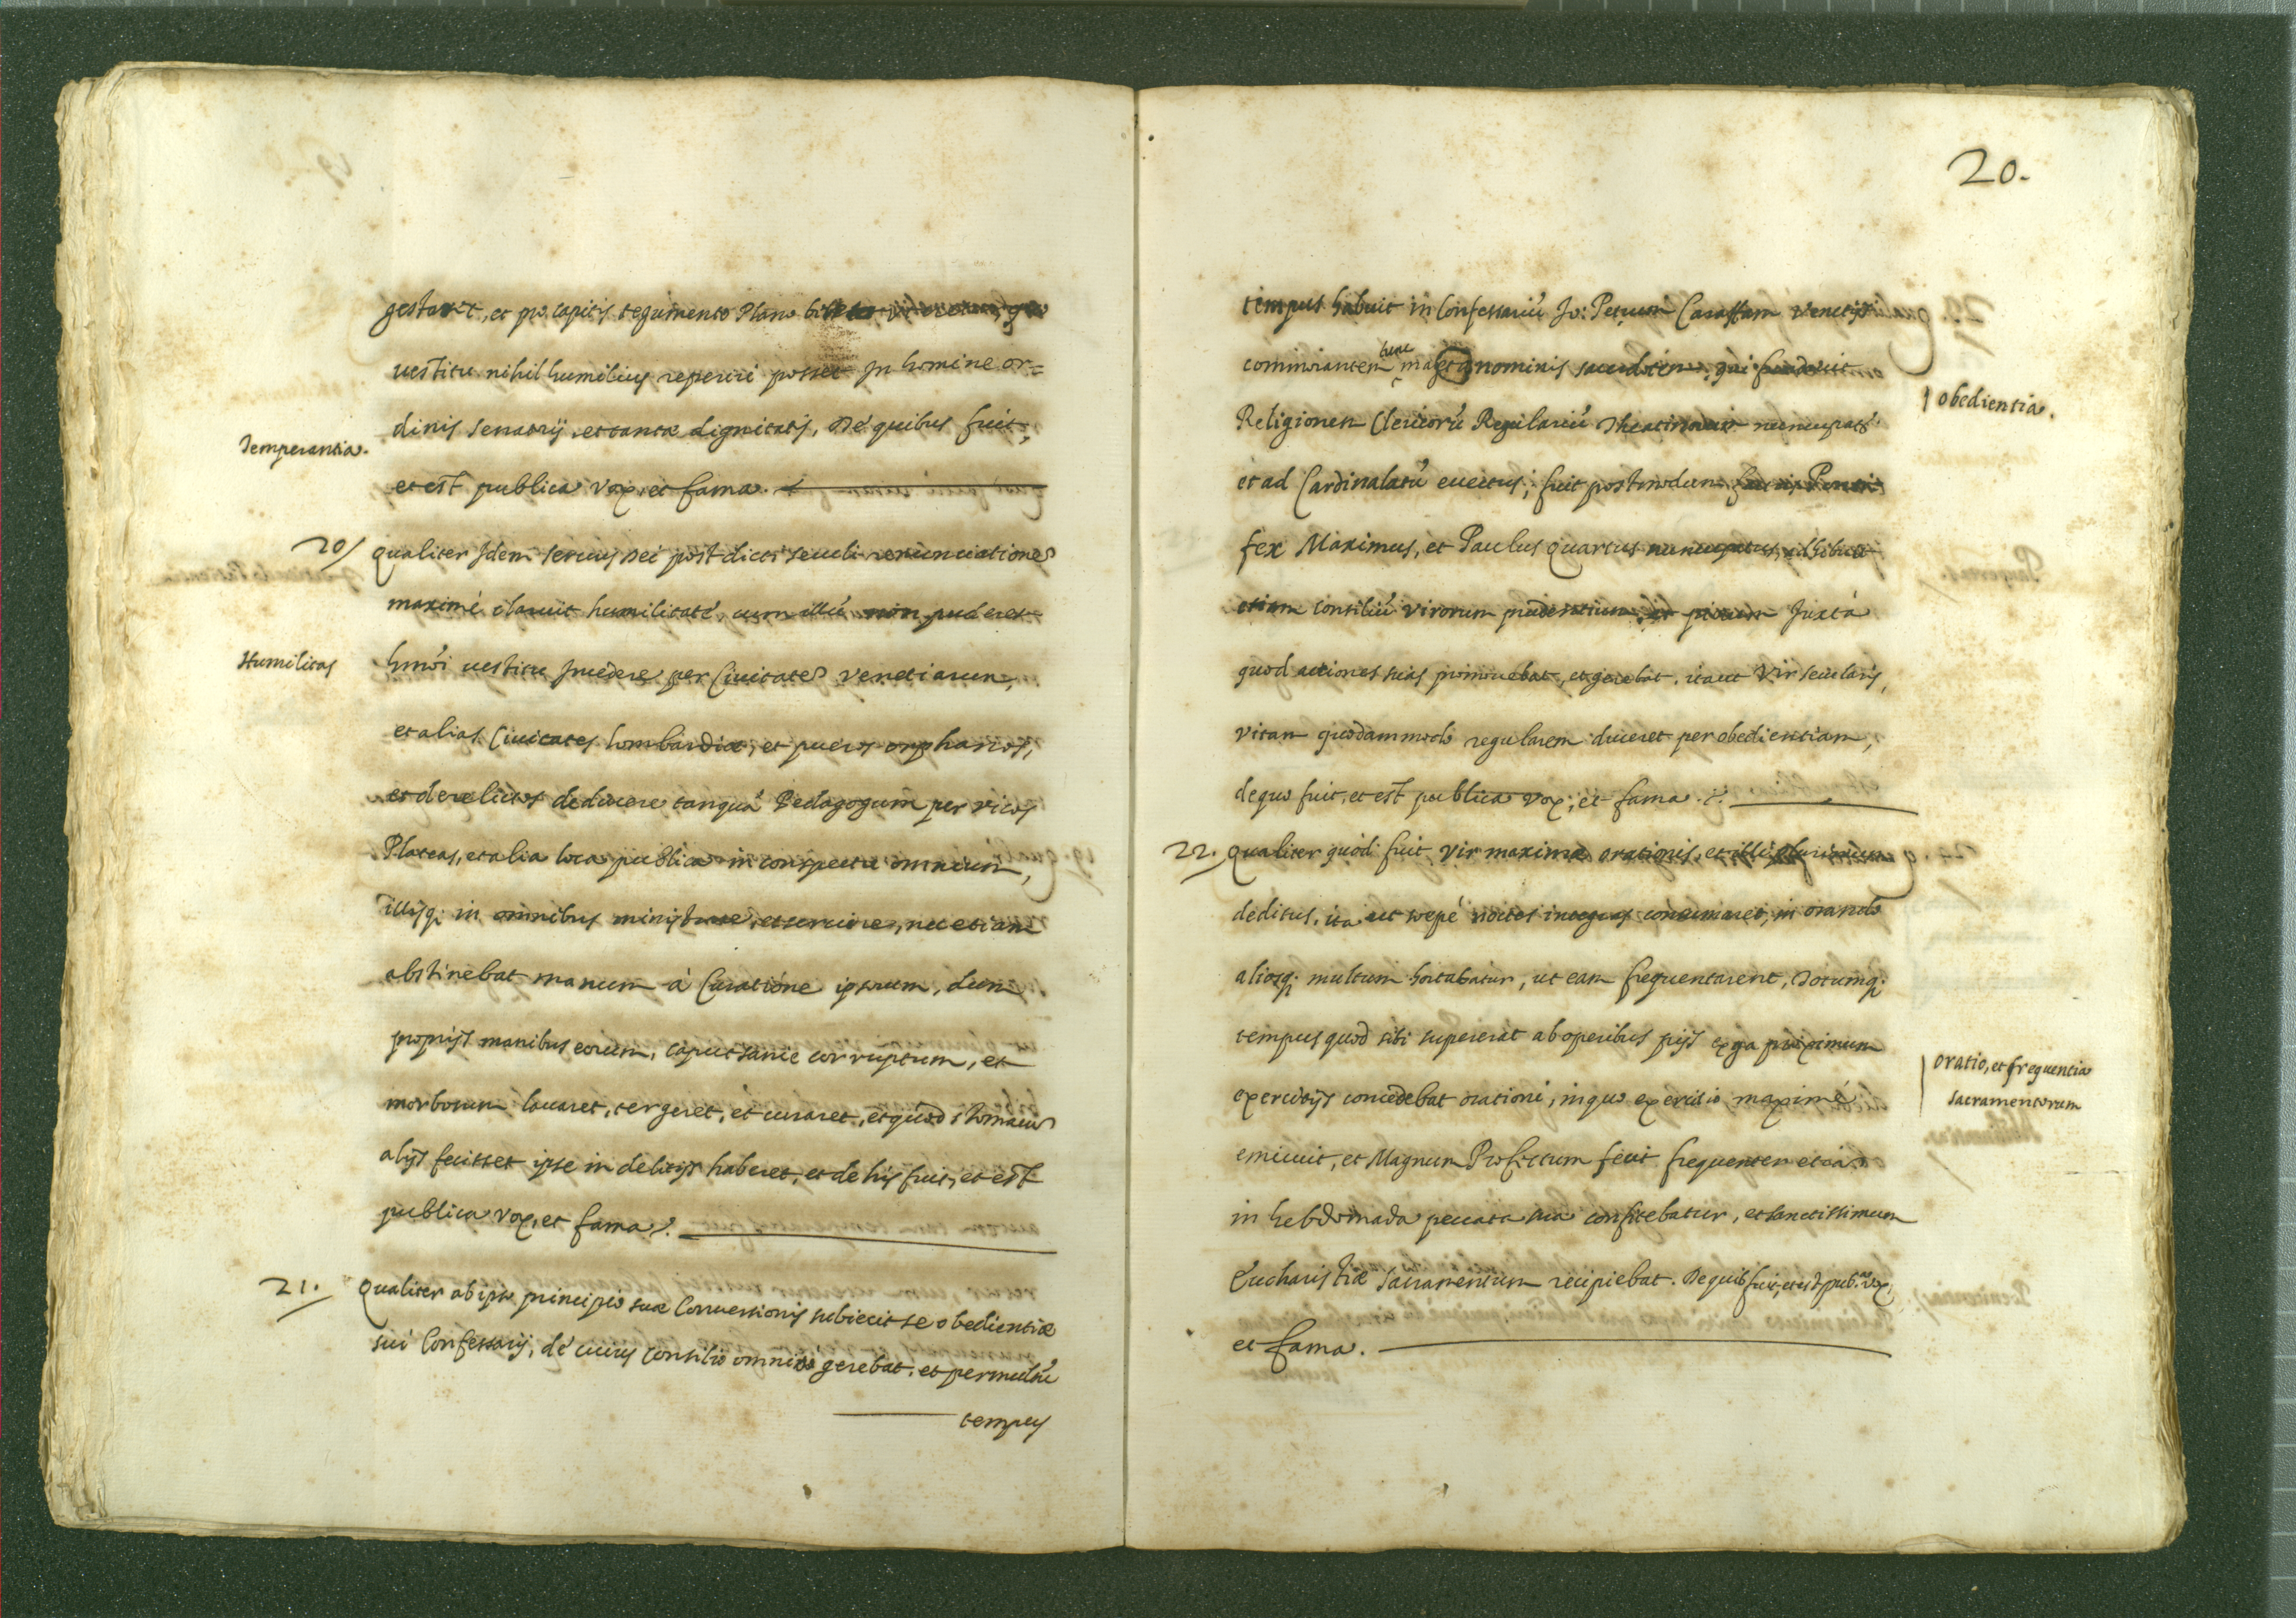 gestaret, et pro capitis tegumento Plano
vestitu nihil humilius reperiri posset In homine or=
dinis senatorij, et tantæ dignitatis, De quibus fuit,
Temperantia.
et est publica vox, et fama.
20/ Qualiter Idem servus Dei post dicti seculi renunciatione
maximè claruit humilitate, cum illũ non puderet
Humilitas
hmõi vestitu Incedere per Civitate Venetiarum,
et alias Civitates Lombardiæ, et pueros orphanos,
et derelictos deducere tanquã Pedagogum per vicos
Plateas, et alia loca publica in conspectu omnium,
illisq; in omnibus ministrare, et servire, nec etiam
abstinebat manum à Curatione ipsorum, dum
proprijs manibus eorum, caput sanie corruptum, et
morborum lavaret, tergeret, et curaret, et quod stomaco
alijs fecisset ipse in delitijs haberet, et de his fuit, et est
publica vox, et fama.
21. Qualiter ab ipso principio suæ Conversionis subiecit se obedientiæ
sui Confessarij, de cuius consilio omnia gerebat, et per multũ
tempus
20.
tempus habuit in Confessariũ Jo: Petrum Caraffam Venetijs
tunc
commorantem magni nominis sacerdotem, qui fundavit
Religionem Clericorũ Regulariũ Theatinorum nuncupatã
obedientia.
et ad Cardinalatũ evectus, fuit postmodum Ponti
fex Maximus, et Paulus Quartus nuncupatus, adhibuit
etiam consiliũ virorum prudentium, et piorum Juxta
quod actiones suas promovebat, et gerebat, ita ut Vir secularis,
vitam quodammodo regularem duceret per obedientiam,
de quo fuit, et est publica vox, et fama.
22. Qualiter quod fuit vir maximæ orationis, et illi plurimum
deditus, ita ut sepè noctes integras consumaret, in orando
aliosq; multum hortabatur, ut eam frequentarent, Totumq;
tempus quod sibi supererat ab operibus pijs erga proximum
oratio, et frequentia
Sacramentorum
exercitijs concedebat orationi, in quo exercitio maximè
emicuit, et Magnum Profectum fecit frequenter etiã
in hebdomada peccata sua confitebatur, et sanctissimum
Eucharistiæ Sacramentum recipiebat. De quib. fuit, et est pub.ca vox,
et fama.